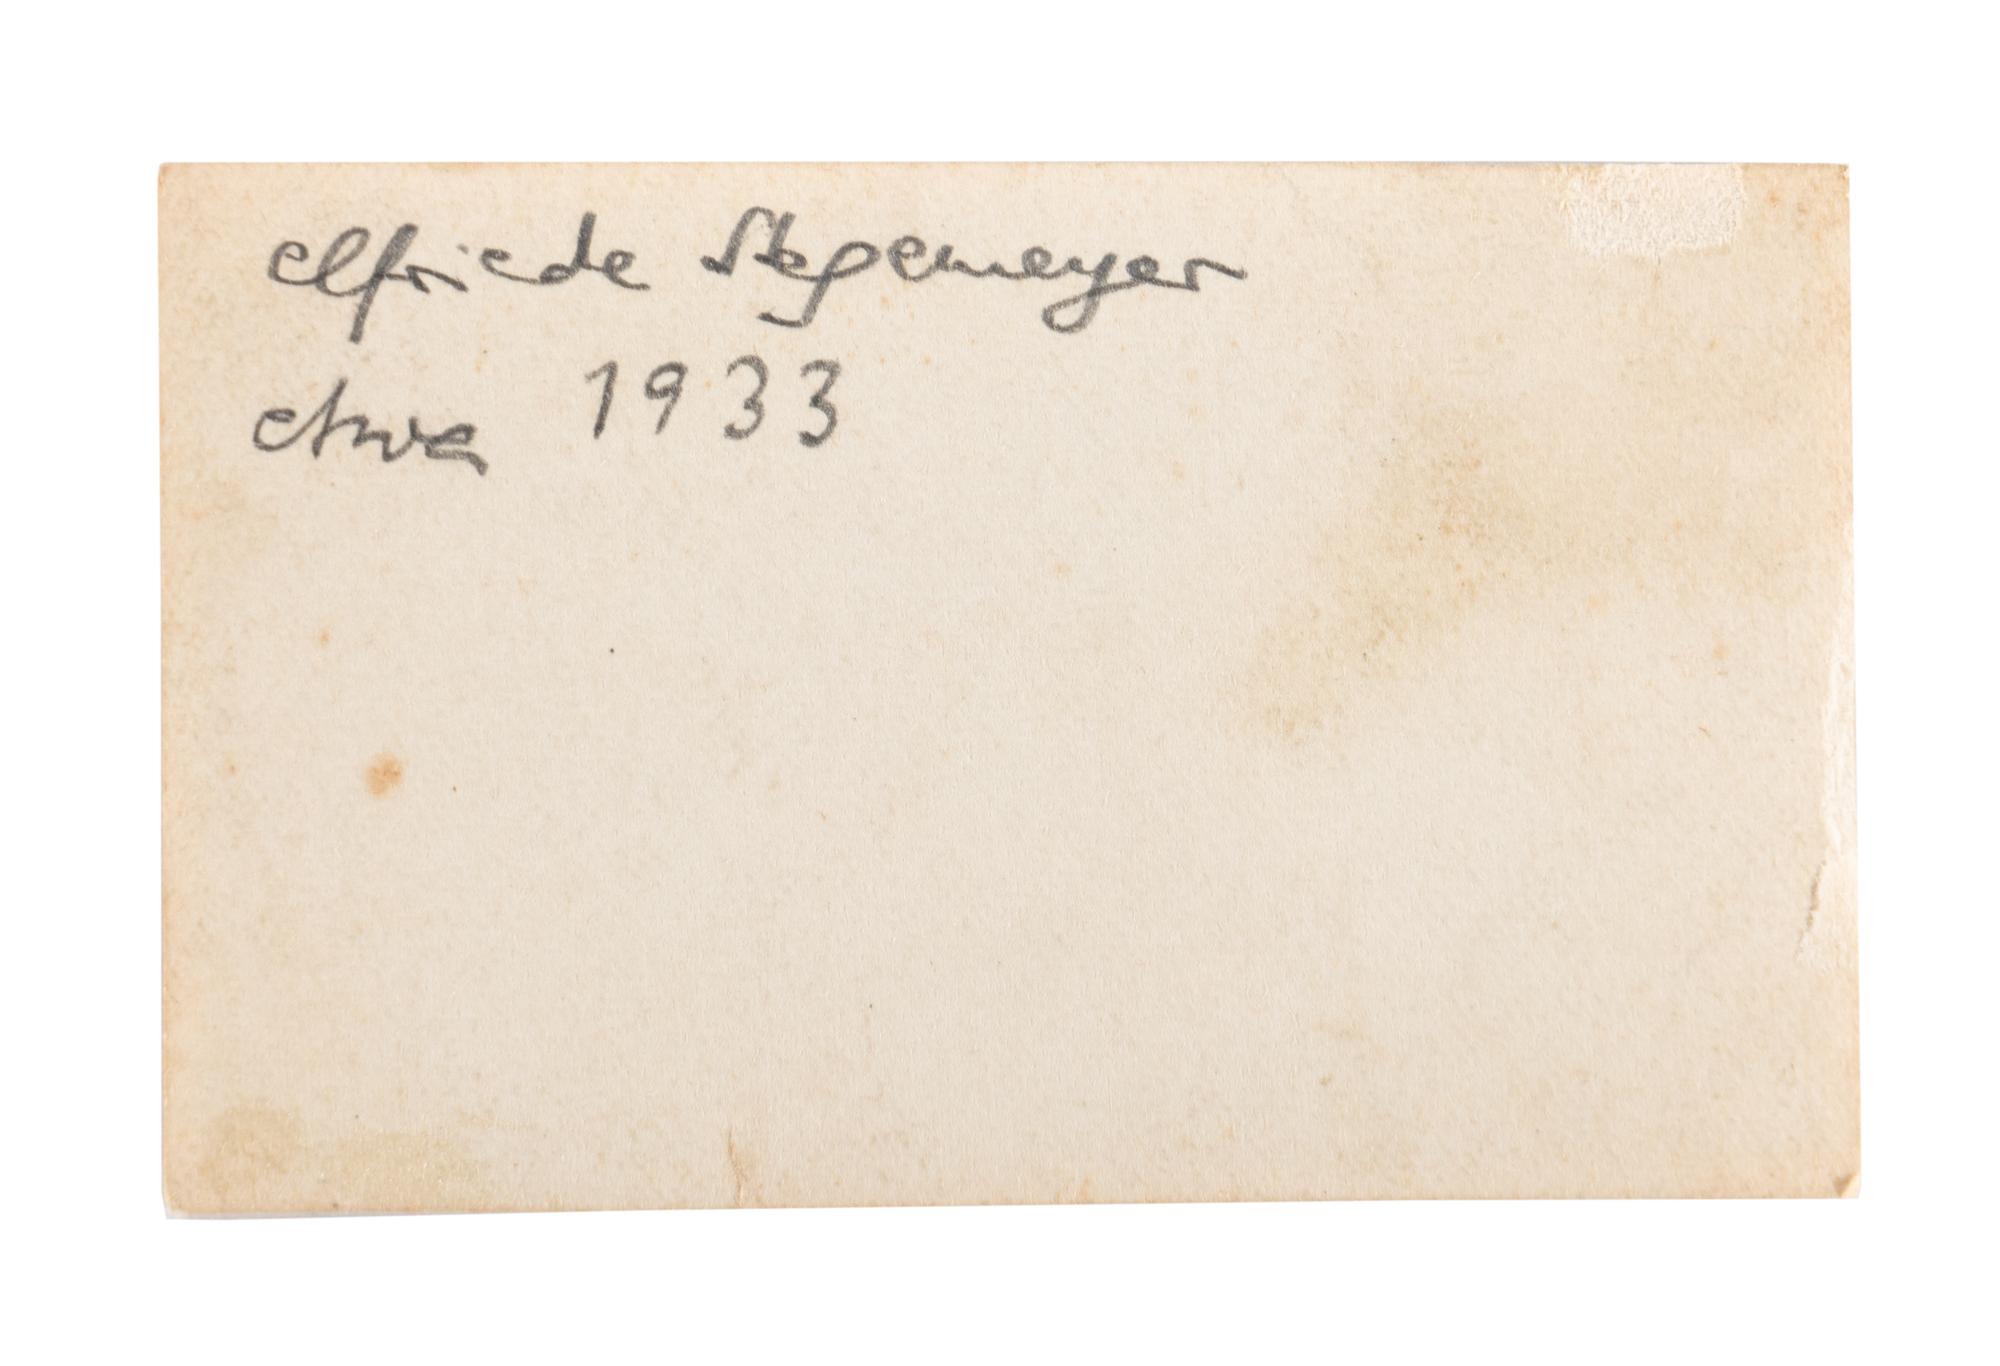 elfriede Stegemeyer
etwa 1933